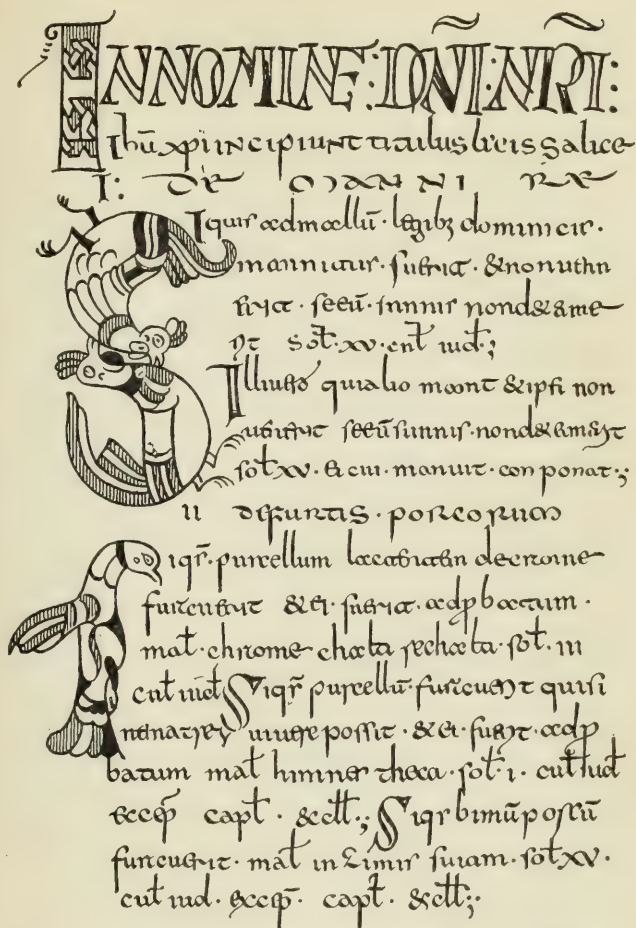 IN NOMINE: DÑI: NR̃I:
Ihū xp̄i incipiunt titulus leis salice
I: DE MANNIRE
Siquis admallū. legibꝫ dominicis.
mannitur. fuerit. & non uene
rit. seeū. sunnis nondetame
sol. xv. cul iud.;
Ille uero qui alio mannit & ipsi non
uenerit seeū sunnis. nondet
sol xv. & cui. manuit. conponat.;
II DEFURTIS. PORCORUM
Siqr̄. purcellum lactantem decronne
furauerit & ei. fuerit. adp̄batum.
mal. chronne chalta rechalta. sol. III
cul iud Siqr̄ purcellū. furauerit quisi
nematrē uiuere possit. & ei. fuerit. adp̄
batum mal himnes theca. sol. I. cul iud
excep̄ capl. & cll.; Siqr bimū porcū
furauerit. mal in zimis suiam. sol xv.
cul iud. excep̄. capl. & cll.;